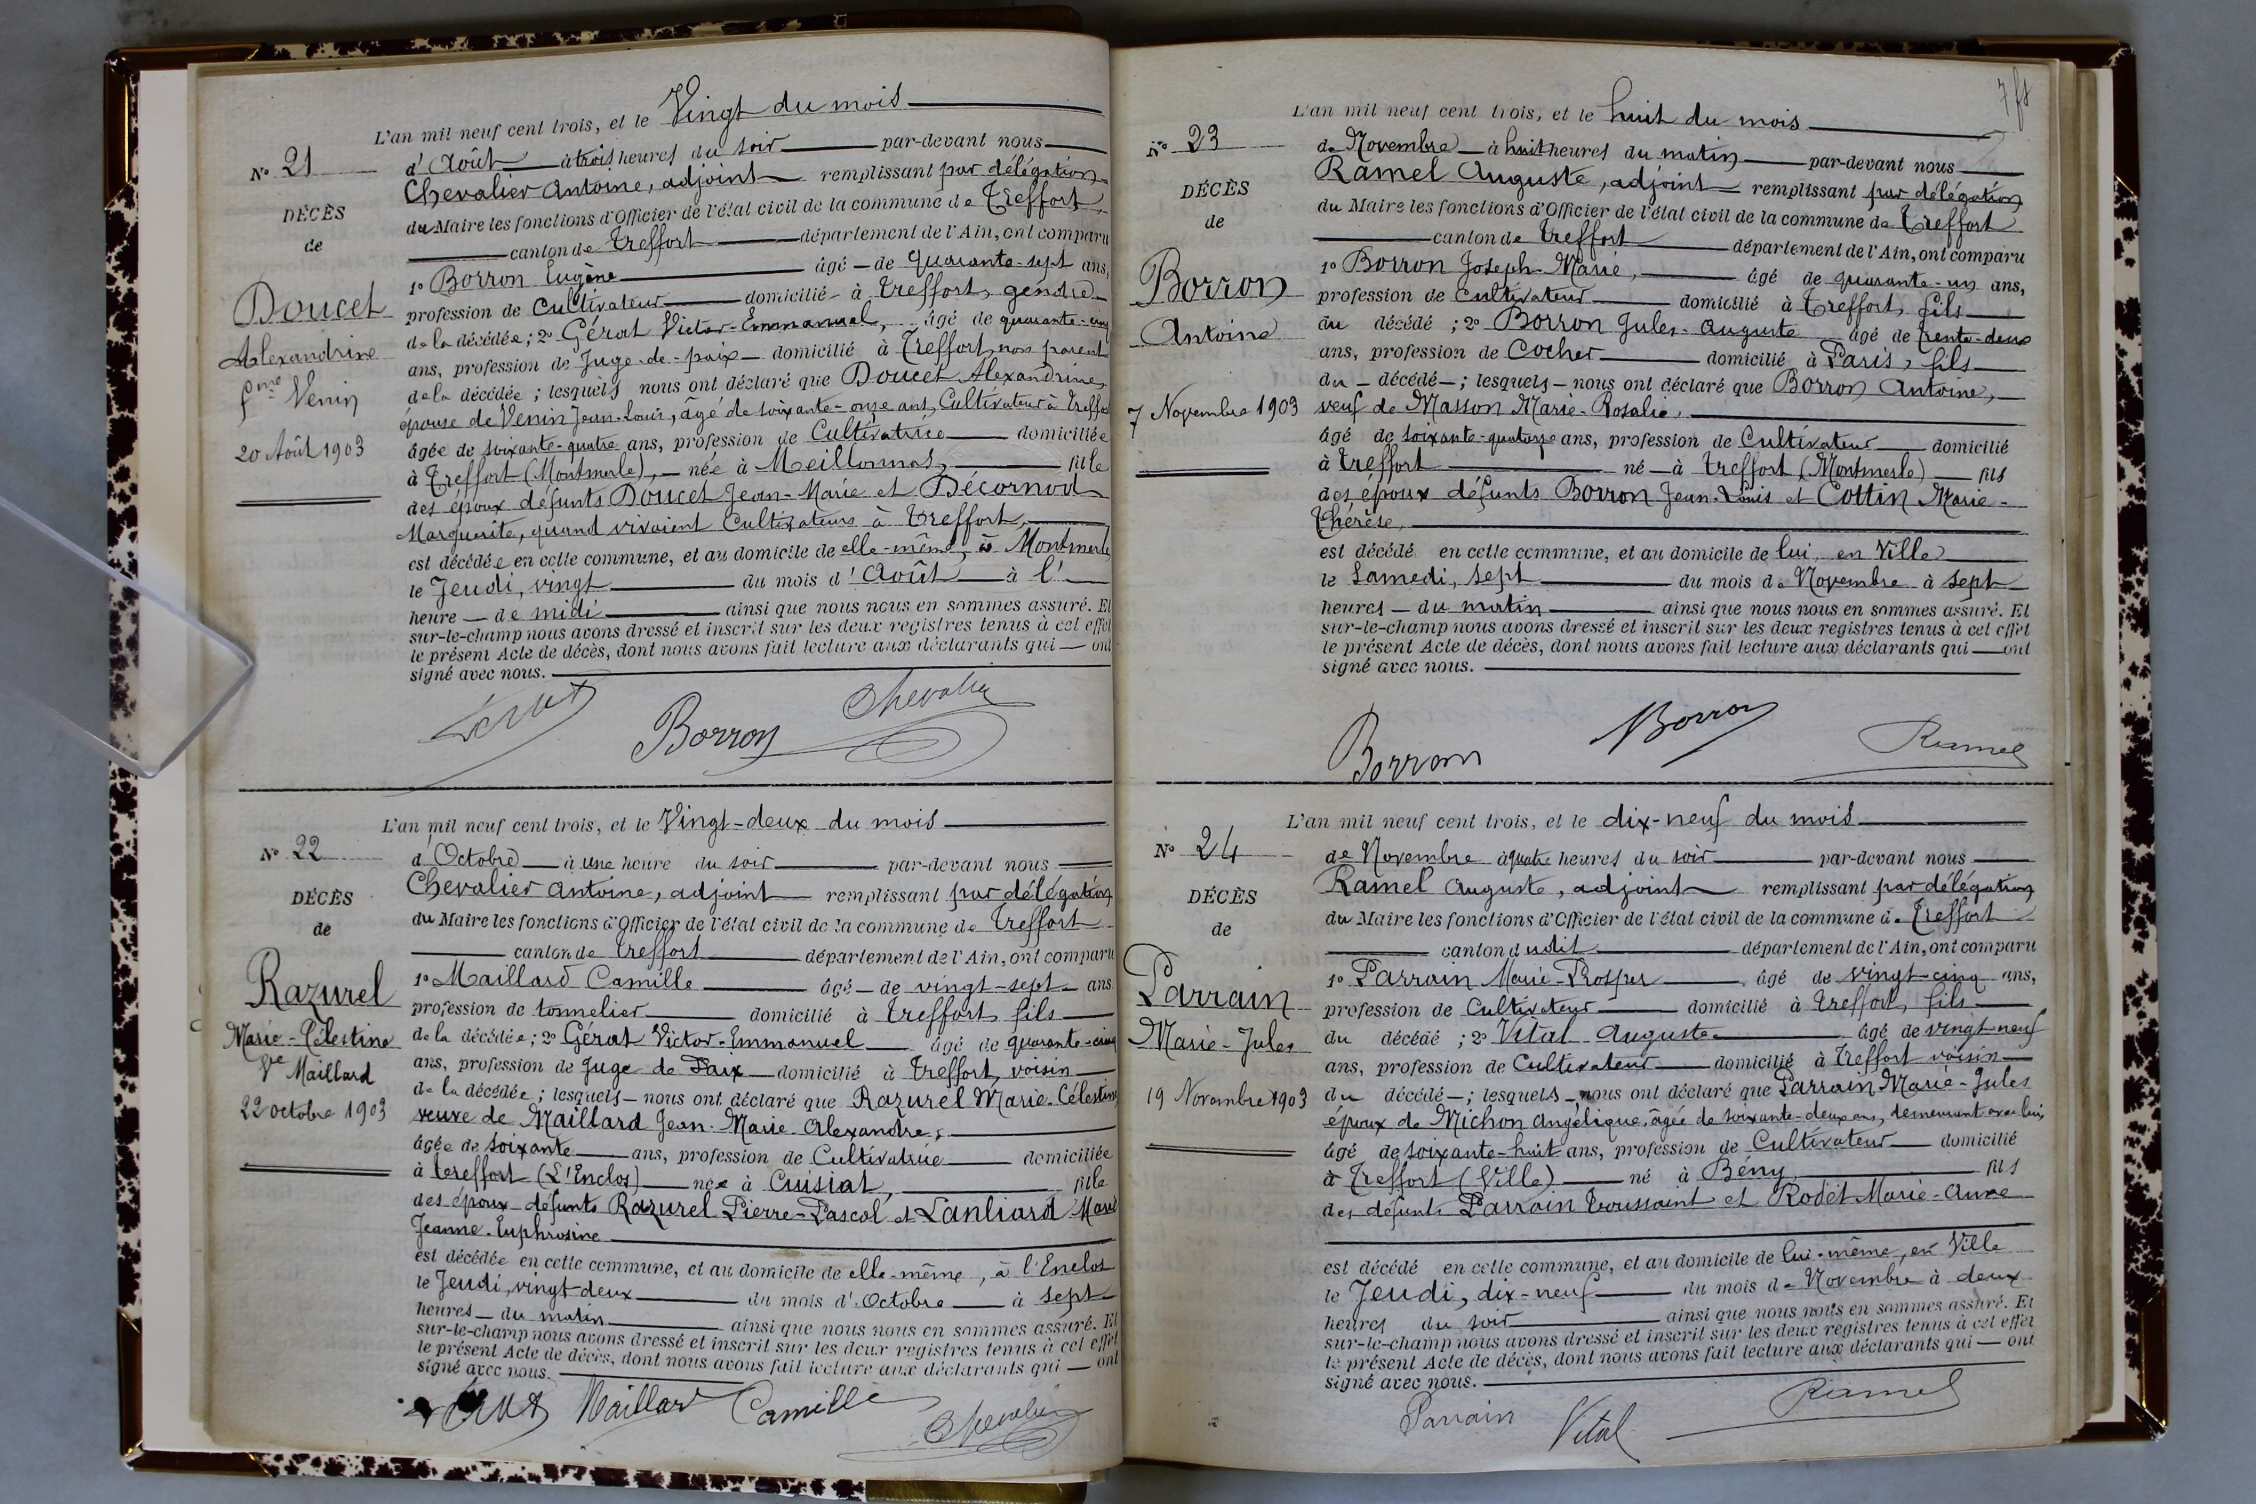 L'an mil neuf cent trois, et le Vingt du mois
N° 21
d'Août à trois heures du soir par-devant nous
Chevalier Antoine, adjoint remplissant par délégation
DÉCÈS
du Maire les fonctions d'Officier de l'état civil de la commune de Treffort,
de
canton de Treffort département de l'Ain, ont comparu
1° Borron Eugène âgé de quarante-sept ans,
Doucet
profession de Cultivateur domicilié à Treffort, gendre
de la décédée ; 2° Gérat Victor-Emmanuel, âgé de quarante-cinq
Alexandrine
ans, profession de Juge-de-paix domicilié à Treffort, non parent
fme Venin
de la décédée ; lesquels nous ont déclaré que Doucet Alexandrine,
épouse de Venin Jean-Louis, âgé de soixante-onze ans, Cultivateur à Treffort
20 Août 1903
âgée de soixante-quatre ans, profession de Cultivatrice domiciliée
à Treffort (Montmerle), née à Meillonnas, fille
des époux défunts Doucet Jean-Marie et Décornod
Marguerite, quand vivaient Cultivateurs à Treffort,
est décédée en cette commune, et au domicile de elle-même, à Montmerle
le Jeudi, vingt du mois d'Août à l'
heure de midi ainsi que nous nous en sommes assuré. Et
sur-le-champ nous avons dressé et inscrit sur les deux registres tenus à cet effet
le présent Acte de décès, dont nous avons fait lecture aux déclarants qui ont
signé avec nous.
Gérat Borron Chevalier
L'an mil neuf cent trois, et le Vingt-deux du mois
N° 22
d'Octobre à une heure du soir par-devant nous
Chevalier Antoine, adjoint remplissant par délégation
DÉCÈS
du Maire les fonctions d'Officier de l'état civil de la commune de Treffort
de
canton de Treffort département de l'Ain, ont comparu
1° Maillard Camille âgé de vingt-sept ans
Razurel
profession de tonnelier domicilié à Treffort, fils
Marie-Célestine
de la décédée ; 2° Gérat Victor-Emmanuel âgé de quarante-cinq
Ve Maillard
ans, profession de Juge de Paix domicilié à Treffort, voisin
22 octobre 1903
de la décédée ; lesquels nous ont déclaré que Razurel Marie-Célestine
veuve de Maillard Jean-Marie-Alexandre,
âgée de soixante ans, profession de Cultivatrice domiciliée
à Treffort (L'Enclos) née à Cuisiat, fille
des époux défunts Razurel Pierre-Pascal et Lanliard Marie
Jeanne-Euphrosine
est décédée en cette commune, et au domicile de elle-même, à l'Enclos
le Jeudi, vingt-deux du mois d'Octobre à sept
heures du matin ainsi que nous nous en sommes assuré. Et
sur-le-champ nous avons dressé et inscrit sur les deux registres tenus à cet effet
le présent Acte de décès, dont nous avons fait lecture aux déclarants qui ont
signé avec nous.
Gérat Maillard Camille Chevalier
L'an mil neuf cent trois, et le huit du mois
N° 23
de Novembre à huit heures du matin par-devant nous
Ramel Auguste, adjoint remplissant par délégation
DÉCÈS
du Maire les fonctions d'Officier de l'état civil de la commune de Treffort
de
canton de Treffort département de l'Ain, ont comparu
Borron
1° Borron Joseph-Marie, âgé de quarante-un ans,
profession de Cultivateur domicilié à Treffort, fils
Antoine
du décédé ; 2° Borron Jules-Auguste âgé de trente-deux
ans, profession de Cocher domicilié à Paris, fils
du décédé ; lesquels nous ont déclaré que Borron Antoine,
7 Novembre 1903
veuf de Masson Marie-Rosalie,
âgé de soixante-quatorze ans, profession de Cultivateur domicilié
à Treffort né à Treffort (Montmerle) fils
des époux défunts Borron Jean-Louis et Cottin Marie-
Thérèse,
est décédé en cette commune, et au domicile de lui, en Ville
le Samedi, sept du mois de Novembre à sept
heures du matin ainsi que nous nous en sommes assuré. Et
sur-le-champ nous avons dressé et inscrit sur les deux registres tenus à cet effet
le présent Acte de décès, dont nous avons fait lecture aux déclarants qui ont
signé avec nous.
Borron Borron Ramel
L'an mil neuf cent trois, et le dix-neuf du mois
N° 24
de Novembre à quatre heures du soir par-devant nous
Ramel Auguste, adjoint remplissant par délégation
DÉCÈS
du Maire les fonctions d'Officier de l'état civil de la commune de Treffort
de
canton dudit département de l'Ain, ont comparu
Parrain
1° Parrain Marie-Prosper âgé de vingt-cinq ans,
profession de Cultivateur domicilié à Treffort, fils
Marie-Jules
du décédé ; 2° Vital Auguste âgé de vingt-neuf
ans, profession de Cultivateur domicilié à Treffort voisin
19 Novembre 1903
du décédé ; lesquels nous ont déclaré que Parrain Marie-Jules
époux de Michon Angélique, âgée de soixante-deux ans, demeurant avec lui,
âgé de soixante-huit ans, profession de Cultivateur domicilié
à Treffort (Ville) né à Bény fils
des défunts Parrain Toussaint et Rodet Marie-Anne
est décédé en cette commune, et au domicile de lui-même, en Ville
le Jeudi, dix-neuf du mois de Novembre à deux
heures du soir ainsi que nous nous en sommes assuré. Et
sur-le-champ nous avons dressé et inscrit sur les deux registres tenus à cet effet
le présent Acte de décès, dont nous avons fait lecture aux déclarants qui ont
signé avec nous.
Parrain Vital Ramel